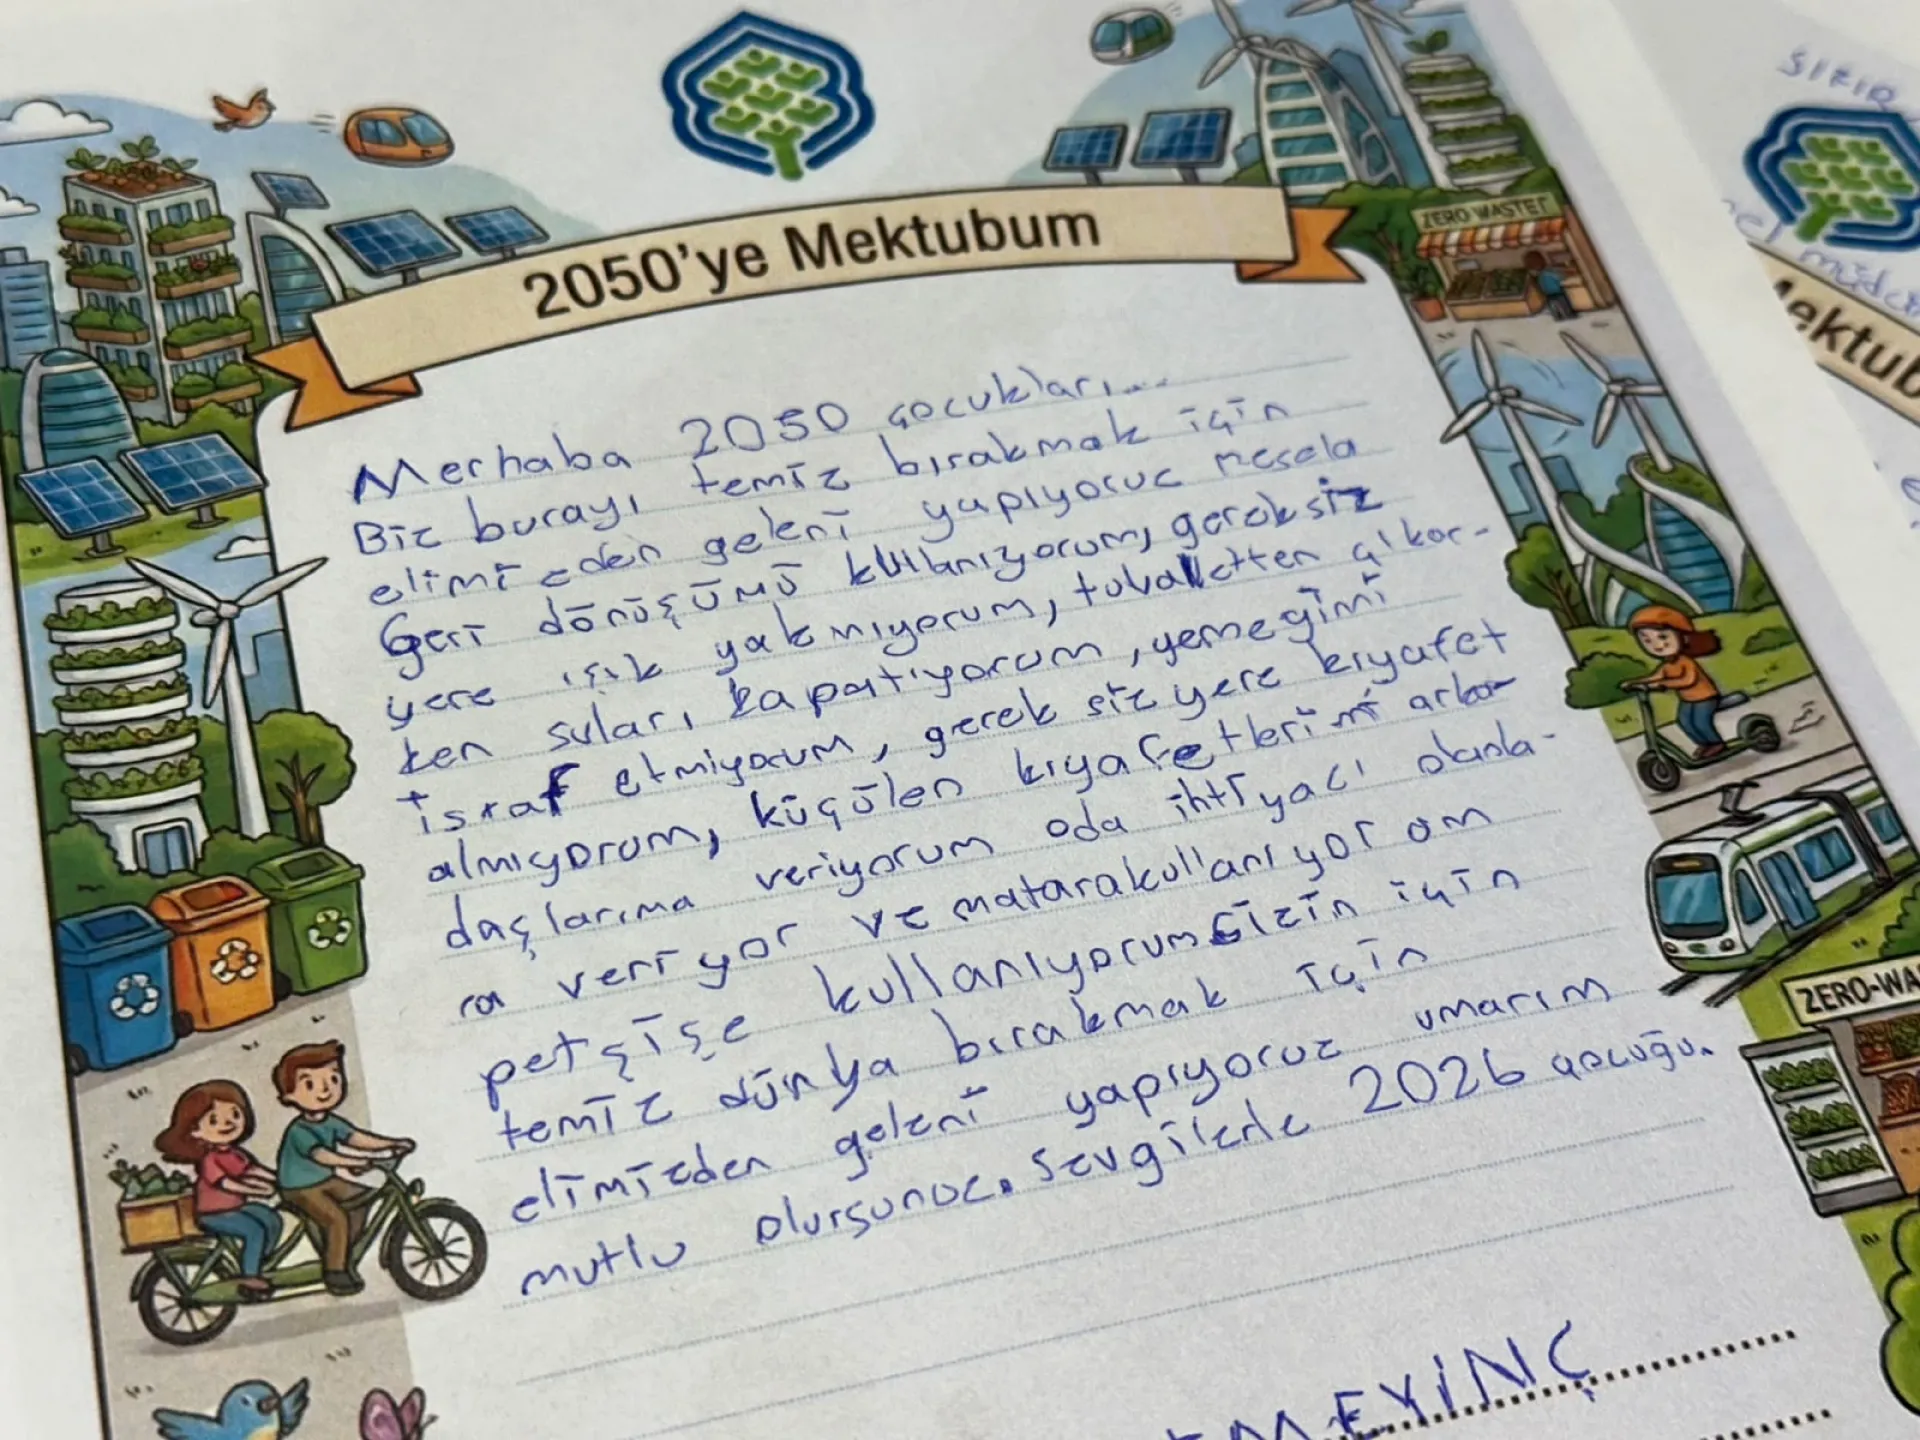 2050'ye Mektubum
ZERO WASTE
Merhaba 2050 çocukları...
Biz burayı temiz bırakmak için
elimizden geleni yapıyoruz mesela
Geri dönüşümü kullanıyorum, gereksiz
yere ışık yakmıyorum, tuvaletten çıkar-
ken suları kapatıyorum, yemeğimi
israf etmiyorum, gerek siz yere kıyafet
almıyorum, küçülen kıyafetlerimi arka-
daşlarıma veriyorum oda ihtiyacı olanla-
ra veriyor ve matara kullanıyorum
pet şişe kullanıyorum sizin için
temiz dünya bırakmak için
elimizden geleni yapıyoruz umarım
mutlu olursunuz. Sevgilerle 2026 çocuğu.
EYİNÇ
ZERO-WA
SIFIR
ektub